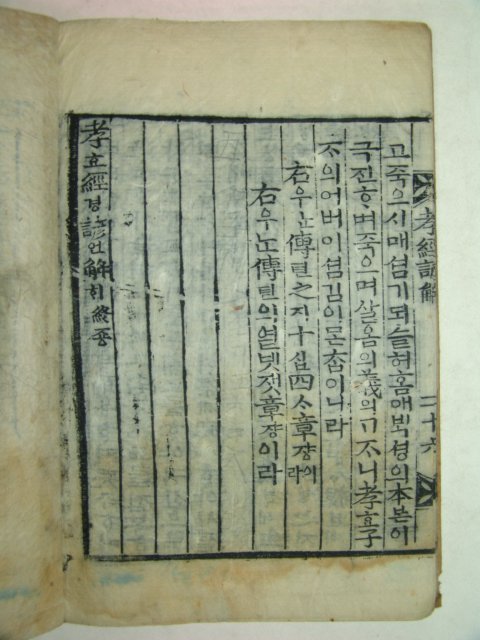 孝經諺解 二十六
고죽으시매셤기되슬허홈애ᄇᆡᆨ셩의本본이
극진ᄒᆞ며죽으며살옴의義의ㅣᄀᆞᄌᆞ니孝효子
ᄌᆞ의어버이셤김이ᄆᆞᄎᆞᆷ이니라
右우ᄂᆞᆫ傳뎐之지十십四ᄉᆞ章쟝이라
右우ᄂᆞᆫ傳뎐의열넷잿章쟝이라
孝효經경諺언解ᄒᆡ終죵